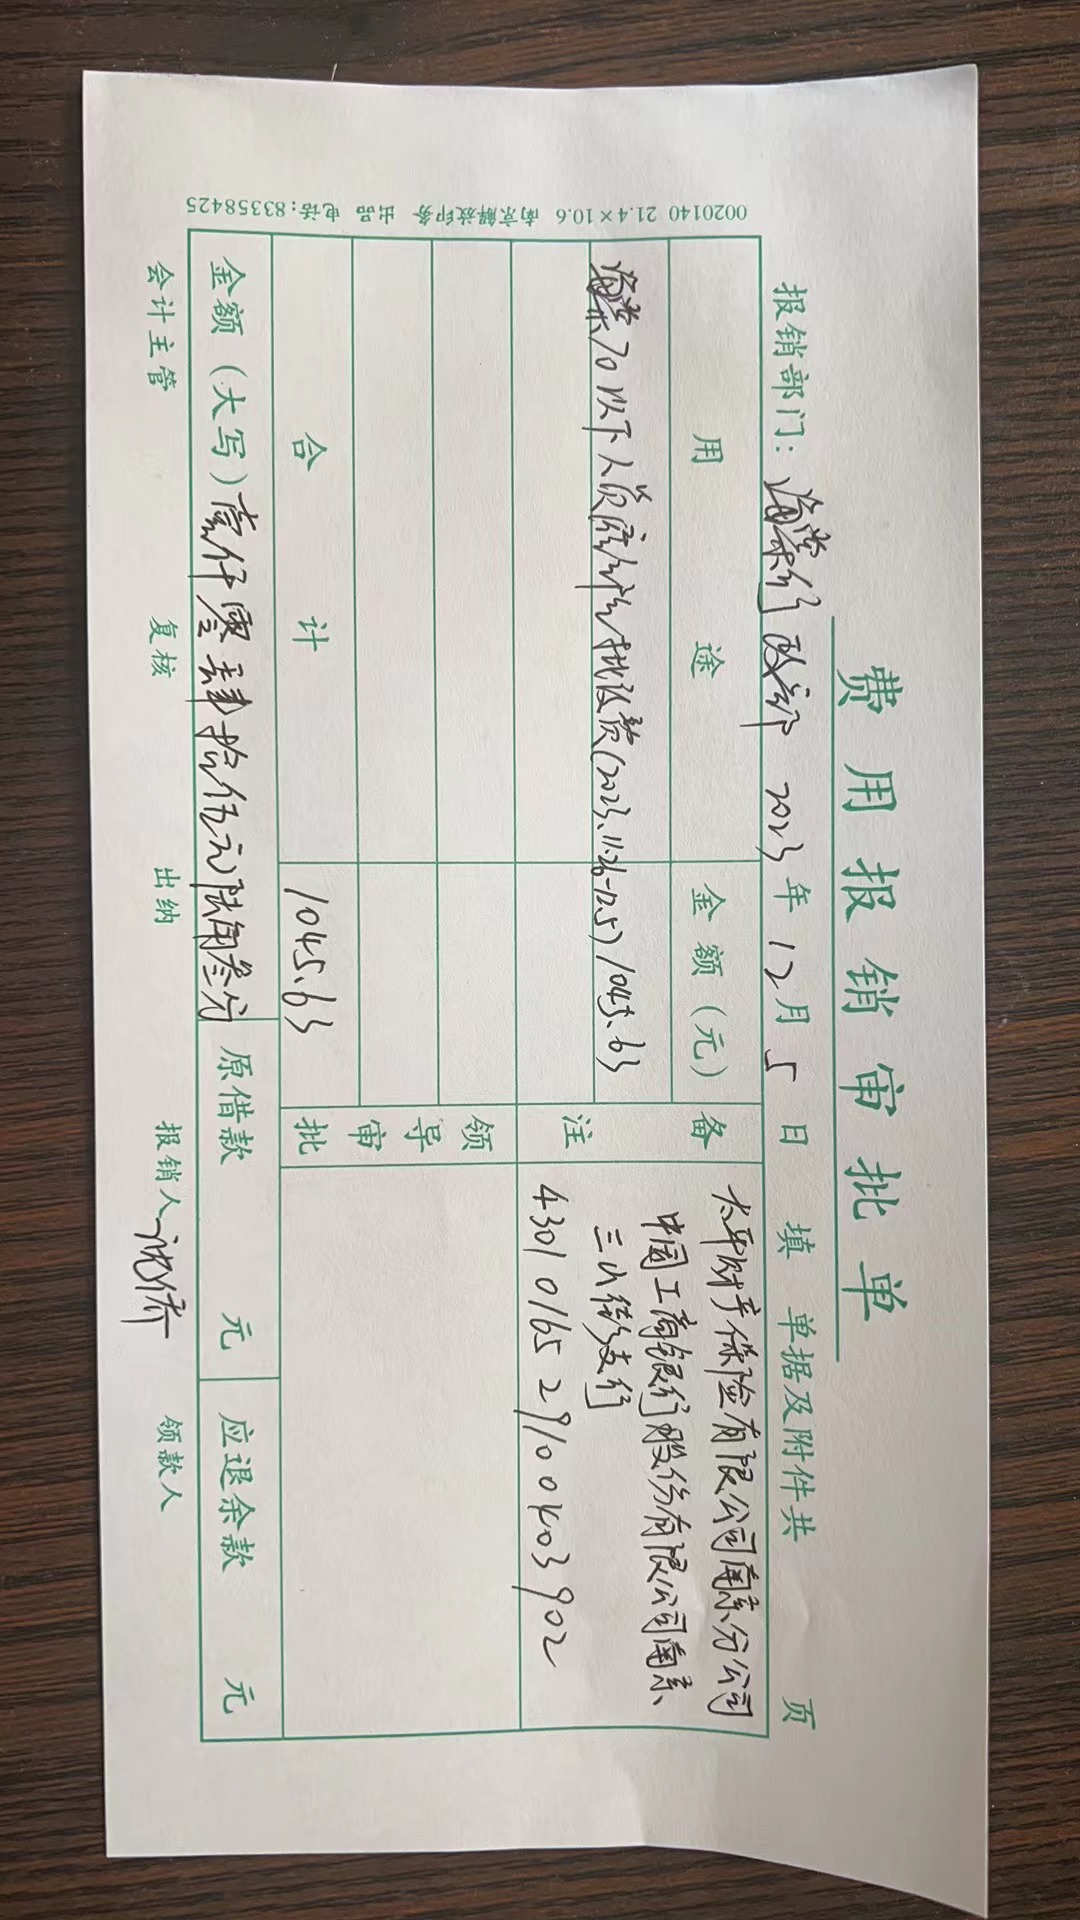 费用报销审批单
报销部门：海棠行政部 2023年12月5日 填 单据及附件共 页
用途 金额（元） 备注
太平财产保险有限公司南京分公司
中国工商银行股份有限公司南京
三山街支行
4301 0165 2910 0403 902
海棠70以下人员 批改费(2023.11.26-12.5) 1045.63
领导审批
合计 1045.63
金额（大写）壹仟零肆拾伍元陆角叁分 原借款 元 应退余款 元
会计主管 复核 出纳 报销人 领款人
0020140 21.4×10.6 南京解放印务 出品 电话:83358425